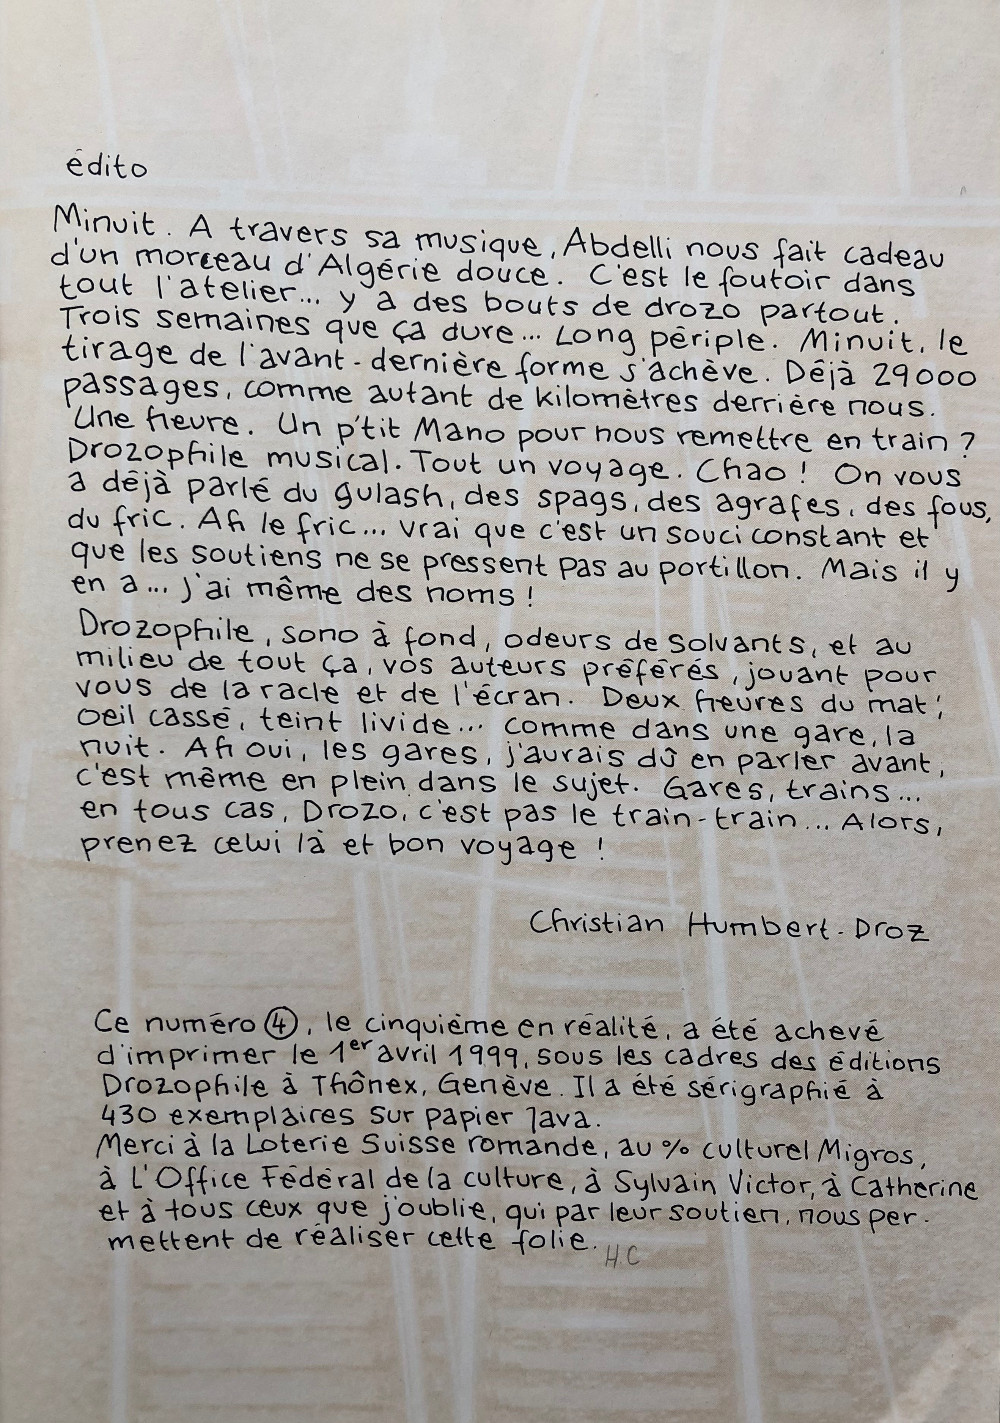 édito
Minuit. A travers sa musique, Abdelli nous fait cadeau
d'un morceau d'Algérie douce. C'est le foutoir dans
tout l'atelier... y a des bouts de drozo partout.
Trois semaines que ça dure... Long périple. Minuit, le
tirage de l'avant-dernière forme s'achève. Déjà 29000
passages, comme autant de kilomètres derrière nous.
Une heure. Un p'tit Mano pour nous remettre en train ?
Drozophile musical. Tout un voyage. Chao ! On vous
a déjà parlé du gulash, des spags, des agrafes, des fous,
du fric. Ah le fric... vrai que c'est un souci constant et
que les soutiens ne se pressent pas au portillon. Mais il y
en a... j'ai même des noms !
Drozophile, sono à fond, odeurs de solvants, et au
milieu de tout ça, vos auteurs préférés, jouant pour
vous de la racle et de l'écran. Deux heures du mat',
oeil cassé, teint livide... comme dans une gare, la
nuit. Ah oui, les gares, j'aurais dû en parler avant,
c'est même en plein dans le sujet. Gares, trains...
en tous cas, Drozo, c'est pas le train-train... Alors,
prenez celui là et bon voyage !
Christian Humbert-Droz
Ce numéro 4, le cinquième en réalité, a été achevé
d'imprimer le 1er avril 1999, sous les cadres des éditions
Drozophile à Thônex, Genève. Il a été sérigraphié à
430 exemplaires sur papier Java.
Merci à la Loterie Suisse romande, au % culturel Migros,
à L'Office Fédéral de la culture, à Sylvain Victor, à Catherine
et à tous ceux que j'oublie, qui par leur soutien, nous per-
mettent de réaliser cette folie.
H.C